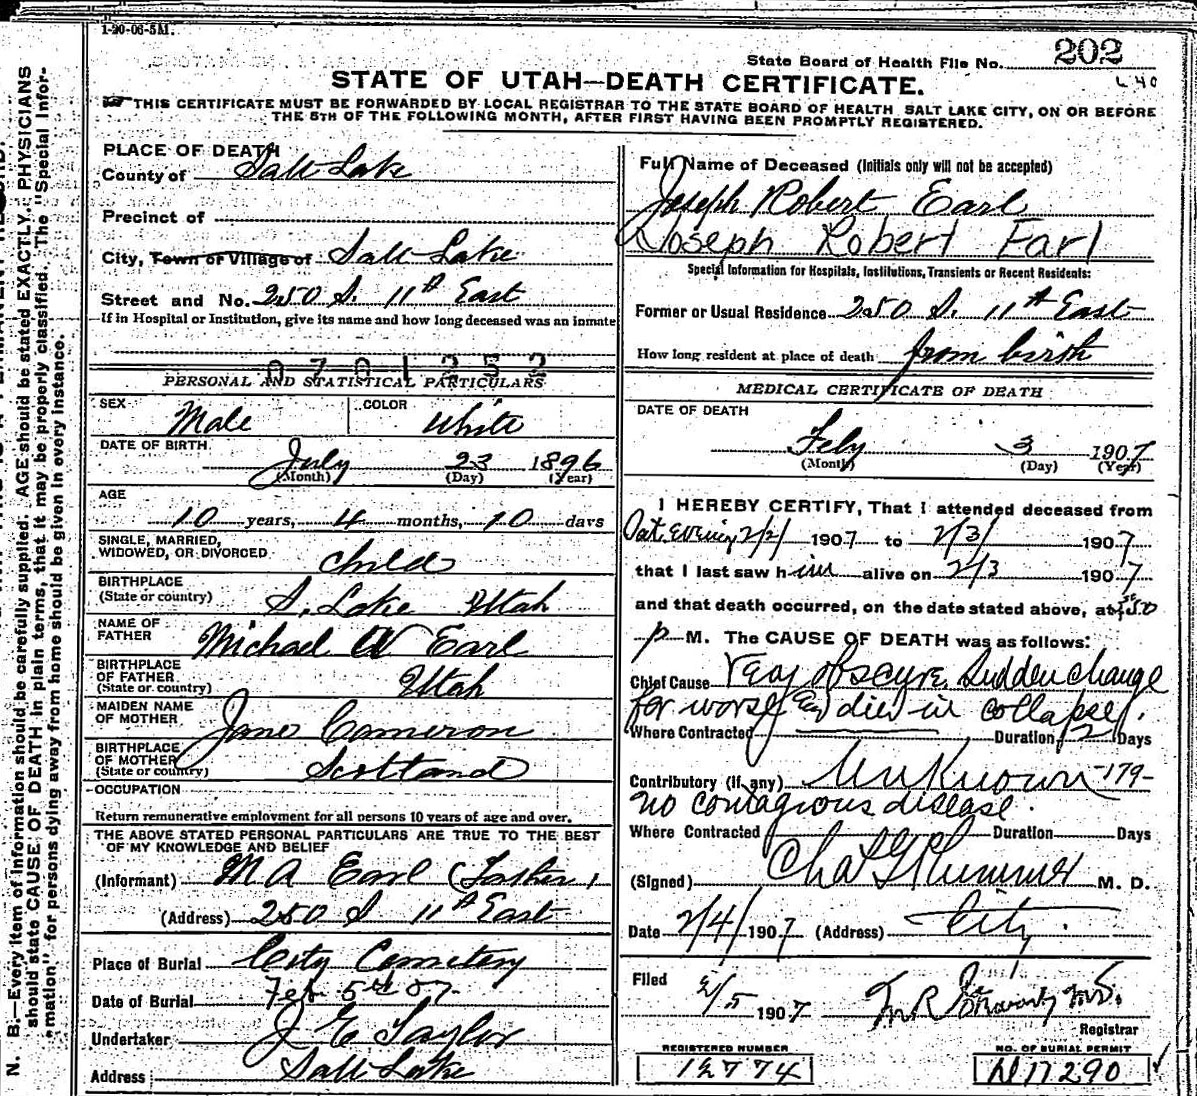 1-20-06-5M.
State Board of Health File No. 202
L 40
STATE OF UTAH—DEATH CERTIFICATE.
THIS CERTIFICATE MUST BE FORWARDED BY LOCAL REGISTRAR TO THE STATE BOARD OF HEALTH SALT LAKE CITY, ON OR BEFORE
THE 5TH OF THE FOLLOWING MONTH, AFTER FIRST HAVING BEEN PROMPTLY REGISTERED.
PLACE OF DEATH
County of Salt Lake
Precinct of
City, Town or Village of Salt Lake
Street and No. 250 S. 11th East
If in Hospital or Institution, give its name and how long deceased was an inmate
0701252
PERSONAL AND STATISTICAL PARTICULARS
SEX Male COLOR White
DATE OF BIRTH July 23 1896
(Month) (Day) (Year)
AGE
10 years, 4 months, 10 days
SINGLE, MARRIED,
WIDOWED, OR DIVORCED child
BIRTHPLACE
(State or country) S. Lake Utah
NAME OF
FATHER Michael A Earl
BIRTHPLACE
OF FATHER
(State or country) Utah
MAIDEN NAME
OF MOTHER Jane Cameron
BIRTHPLACE
OF MOTHER
(State or country) Scotland
OCCUPATION
Return remunerative employment for all persons 10 years of age and over.
THE ABOVE STATED PERSONAL PARTICULARS ARE TRUE TO THE BEST
OF MY KNOWLEDGE AND BELIEF
(Informant) M A Earl (Father)
(Address) 250 S 11th East
Place of Burial City Cemetery
Date of Burial Feb 5th 07.
Undertaker J E Taylor
Address Salt Lake
Full Name of Deceased (Initials only will not be accepted)
Joseph Robert Earl
Joseph Robert Earl
Special Information for Hospitals, Institutions, Transients or Recent Residents:
Former or Usual Residence 250 S. 11th East
How long resident at place of death from birth
MEDICAL CERTIFICATE OF DEATH
DATE OF DEATH
Feby 3 1907
(Month) (Day) (Year)
I HEREBY CERTIFY, That I attended deceased from
Sat. Evening 2/2/ 1907 to 2/3/ 1907
that I last saw him alive on 2/3 1907
and that death occurred, on the date stated above, at
p M. The CAUSE OF DEATH was as follows:
Chief Cause Very obscure. Sudden change
for worse and died in collapse.
Where Contracted Duration 2 Days
Contributory (if any) Unknown -179-
no contagious disease.
Where Contracted Duration Days
(Signed) Chas G Plummer M. D.
Date 2/4/ 1907 (Address) City.
Filed 2/5 1907
Registrar
REGISTERED NUMBER
12774
NO. OF BURIAL PERMIT
N 17290
N. B.—Every item of information should be carefully supplied. AGE should be stated EXACTLY. PHYSICIANS
should state CAUSE OF DEATH in plain terms, that it may be properly classified. The "Special Infor-
mation" for persons dying away from home should be given in every instance.